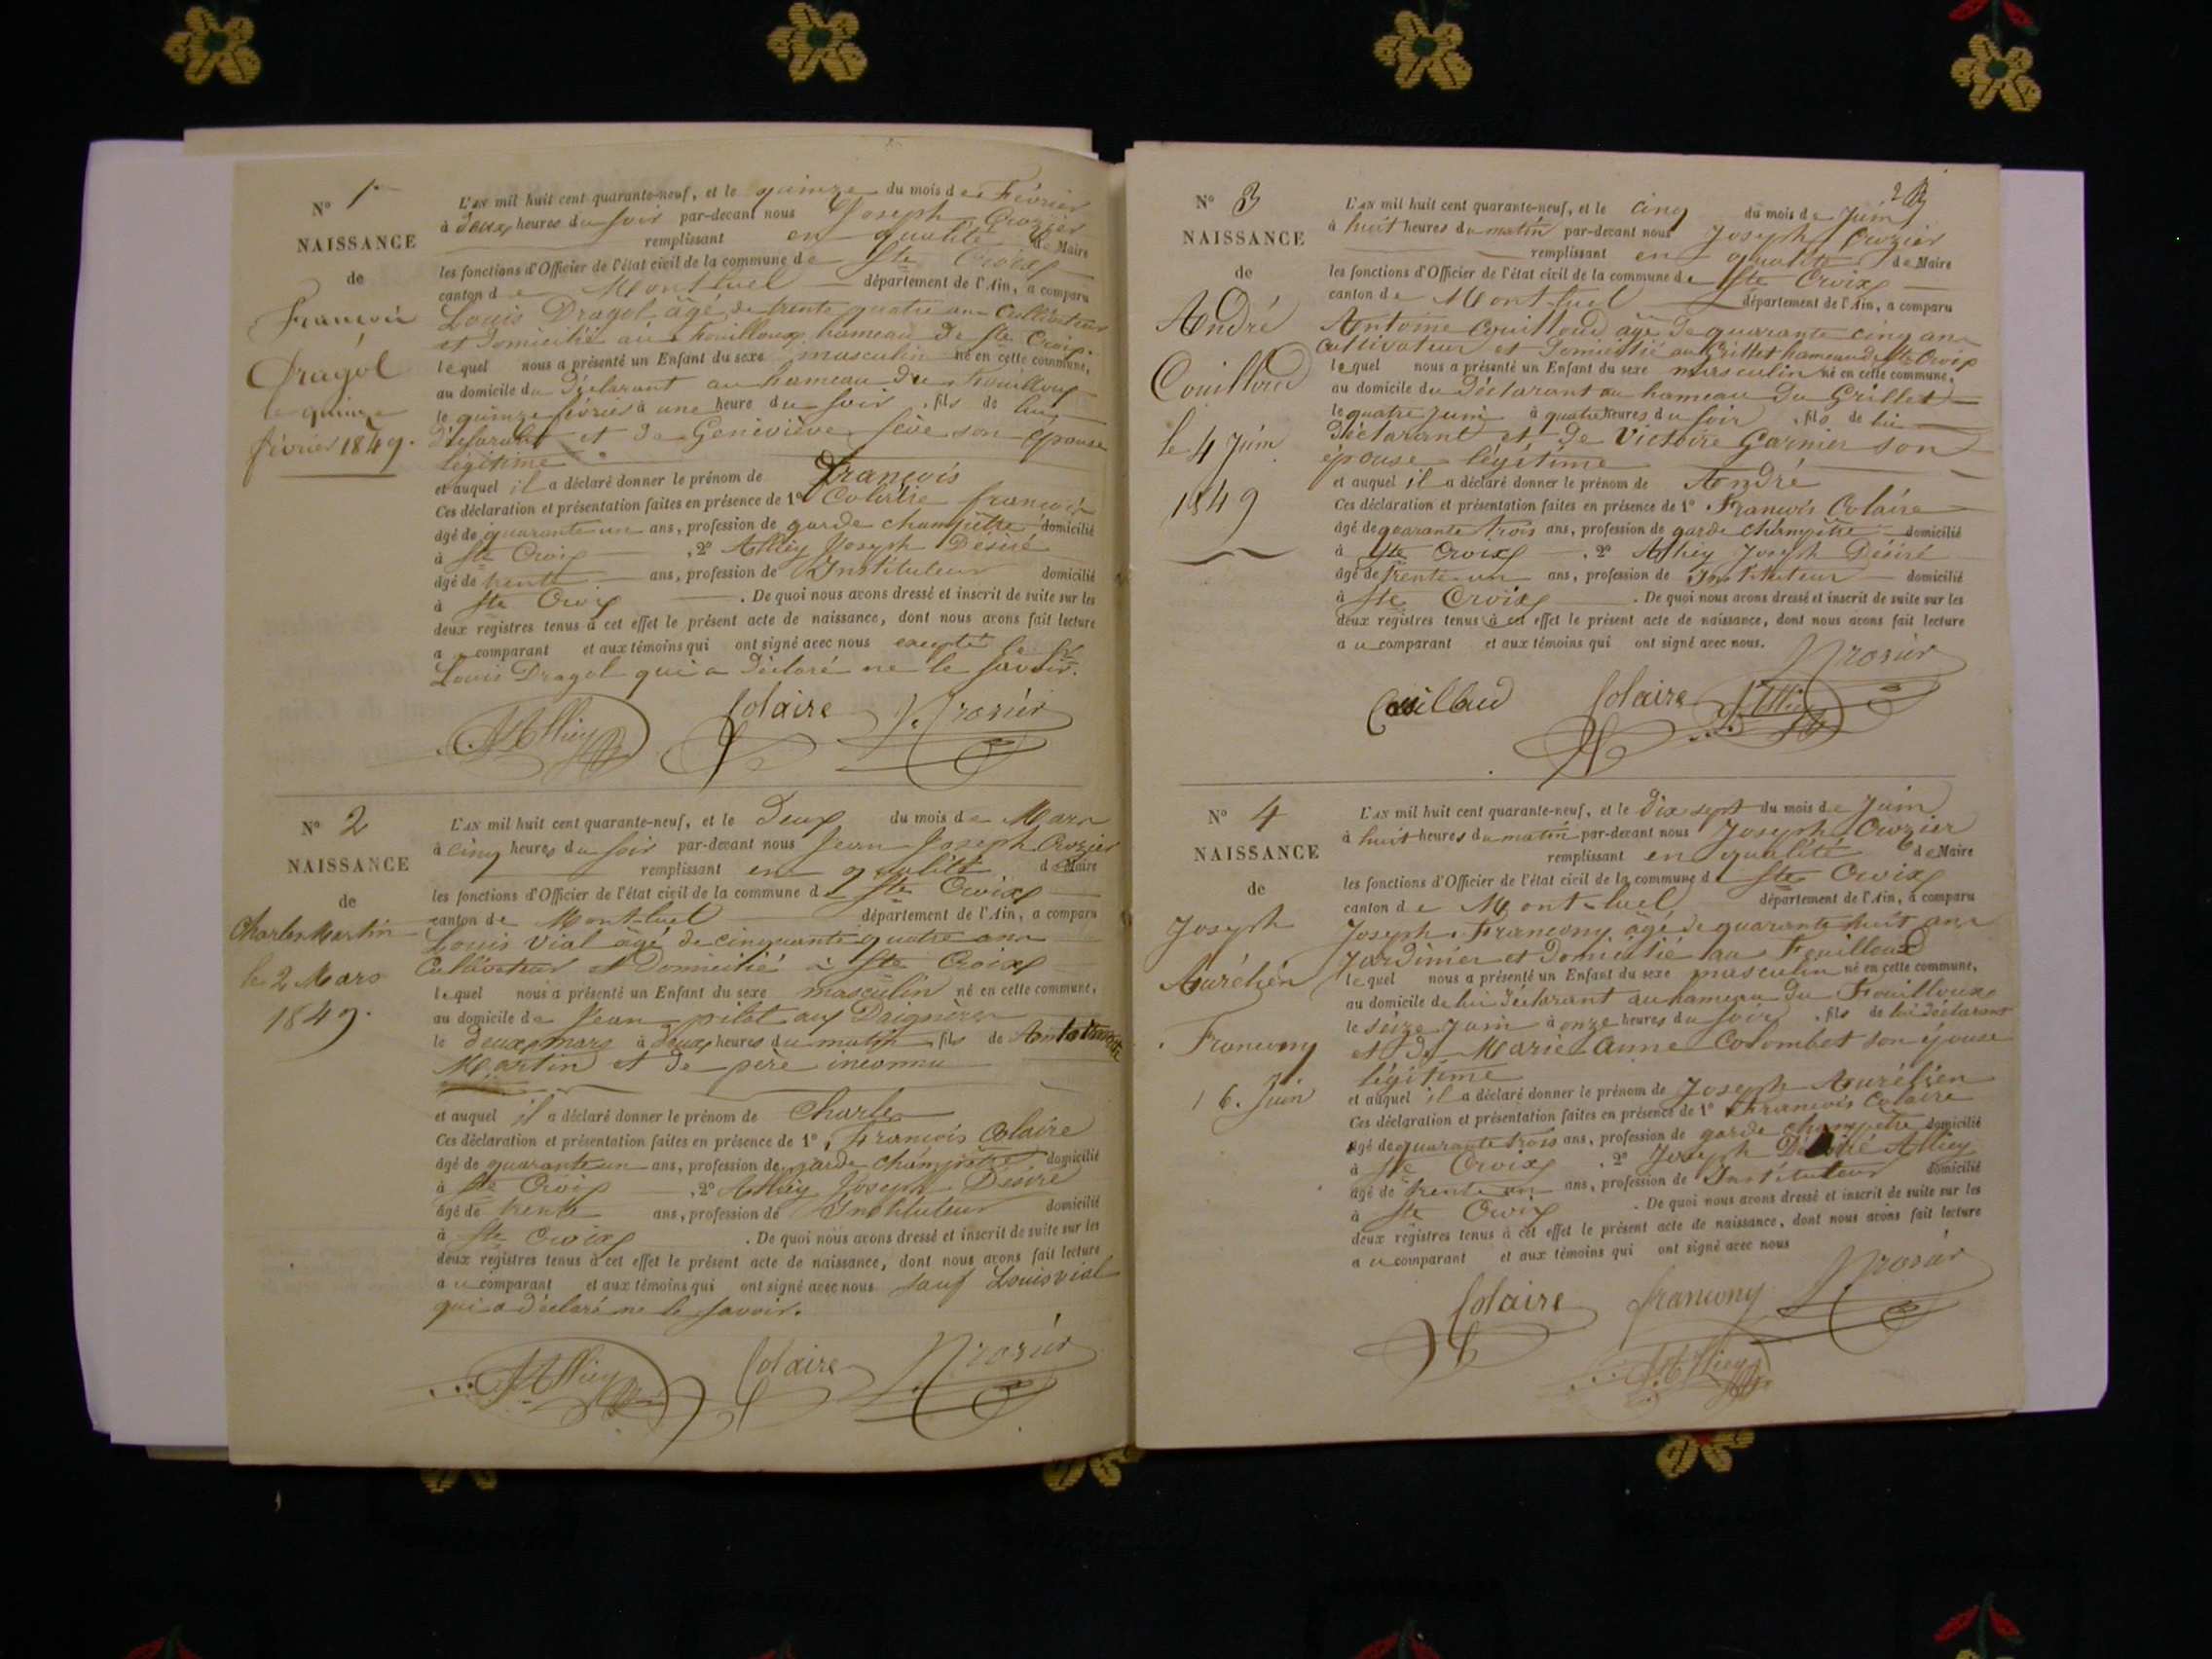 N° 1er
NAISSANCE
de
François
Dragol
le quinze
février 1849.
L'AN mil huit cent quarante-neuf, et le quinze du mois de Février
à deux heures du soir par-devant nous Joseph Crozier
remplissant en qualité de Maire
les fonctions d'Officier de l'état civil de la commune de Ste Croix
canton de Montluel département de l'Ain, a comparu
Louis Dragol âgé de trente quatre ans Cultivateur
et domicilié au Fouilloux hameau de Ste Croix.
lequel nous a présenté un Enfant du sexe masculin né en cette commune,
au domicile du Déclarant au hameau du Fouilloux
le quinze février à une heure du soir, fils de lui
déclarant et de Geneviève Sève son épouse
légitime
et auquel il a déclaré donner le prénom de François
Ces déclaration et présentation faites en présence de 1° Colaire françois
âgé de quarante un ans, profession de garde champêtre domicilié
à Ste Croix, 2° Alliey Joseph Désiré
âgé de trente ans, profession de Instituteur domicilié
à Ste Croix. De quoi nous avons dressé et inscrit de suite sur les
deux registres tenus à cet effet le présent acte de naissance, dont nous avons fait lecture
au comparant et aux témoins qui ont signé avec nous excepté le Sr
Louis Dragol qui a déclaré ne le savoir.
Alliey Colaire J. Crosier
N° 2
NAISSANCE
de
Charles Martin
le 2 Mars
1849.
L'AN mil huit cent quarante-neuf, et le Deux du mois de Mars
à cinq heures du soir par-devant nous Jean Joseph Crozier
remplissant en qualité de Maire
les fonctions d'Officier de l'état civil de la commune de Ste Croix
canton de Mont-luel département de l'Ain, a comparu
Louis Vial âgé de cinquante quatre ans
Cultivateur et Domicilié à Ste Croix
lequel nous a présenté un Enfant du sexe masculin né en cette commune,
au domicile de Jean pilot aux
le deux mars à deux heures du matin, fils de
Martin et de père inconnu
et auquel il a déclaré donner le prénom de Charles
Ces déclaration et présentation faites en présence de 1° François Colaire
âgé de quarante un ans, profession de garde champêtre domicilié
à Ste Croix, 2° Alliey Joseph Désiré
âgé de trente ans, profession de Instituteur domicilié
à Ste Croix. De quoi nous avons dressé et inscrit de suite sur les
deux registres tenus à cet effet le présent acte de naissance, dont nous avons fait lecture
au comparant et aux témoins qui ont signé avec nous sauf Louis vial
qui a déclaré ne le savoir.
Alliey Colaire J. Crosier
N° 3
NAISSANCE
de
André
Couilloud
le 4 Juin
1849
L'AN mil huit cent quarante-neuf, et le cinq du mois de Juin
à huit heures du matin par-devant nous Joseph Crozier
remplissant en qualité de Maire
les fonctions d'Officier de l'état civil de la commune de Ste Croix
canton de Mont-luel département de l'Ain, a comparu
Antoine Couilloud âgé de quarante cinq ans
Cultivateur et Domicilié au Grillet hameau de Ste Croix
lequel nous a présenté un Enfant du sexe masculin né en cette commune,
au domicile du Déclarant au hameau Du Grillet
le quatre juin à quatre heures du soir, fils de lui
Déclarant et de Victoire Garnier son
épouse légitime
et auquel il a déclaré donner le prénom de André
Ces déclaration et présentation faites en présence de 1° François Colaire
âgé de quarante trois ans, profession de garde champêtre domicilié
à Ste Croix, 2° Alliey Joseph Désiré
âgé de trente-un ans, profession de Instituteur domicilié
à Ste Croix. De quoi nous avons dressé et inscrit de suite sur les
deux registres tenus à cet effet le présent acte de naissance, dont nous avons fait lecture
au comparant et aux témoins qui ont signé avec nous.
Couilloud Colaire Alliey J. Crosier
N° 4
NAISSANCE
de
Joseph
Aurélien
Francony
16. Juin
L'AN mil huit cent quarante-neuf, et le Dix sept du mois de Juin
à huit heures du matin par-devant nous Joseph Crozier
remplissant en qualité de Maire
les fonctions d'Officier de l'état civil de la commune de Ste Croix
canton de Mont-luel département de l'Ain, a comparu
Joseph Francony âgé de quarante huit ans
Jardinier et Domicilié au Fouilloux
lequel nous a présenté un Enfant du sexe masculin né en cette commune,
au domicile de lui déclarant au hameau du Fouilloux
le seize juin à onze heures du soir, fils de lui déclarant
et de Marie-Anne Colombet son épouse
légitime
et auquel il a déclaré donner le prénom de Joseph Aurélien
Ces déclaration et présentation faites en présence de 1° François Colaire
âgé de quarante trois ans, profession de garde champêtre domicilié
à Ste Croix, 2° Joseph Désiré Alliey
âgé de trente un ans, profession de Instituteur domicilié
à Ste Croix. De quoi nous avons dressé et inscrit de suite sur les
deux registres tenus à cet effet le présent acte de naissance, dont nous avons fait lecture
au comparant et aux témoins qui ont signé avec nous
Colaire francony J. Crosier
Alliey